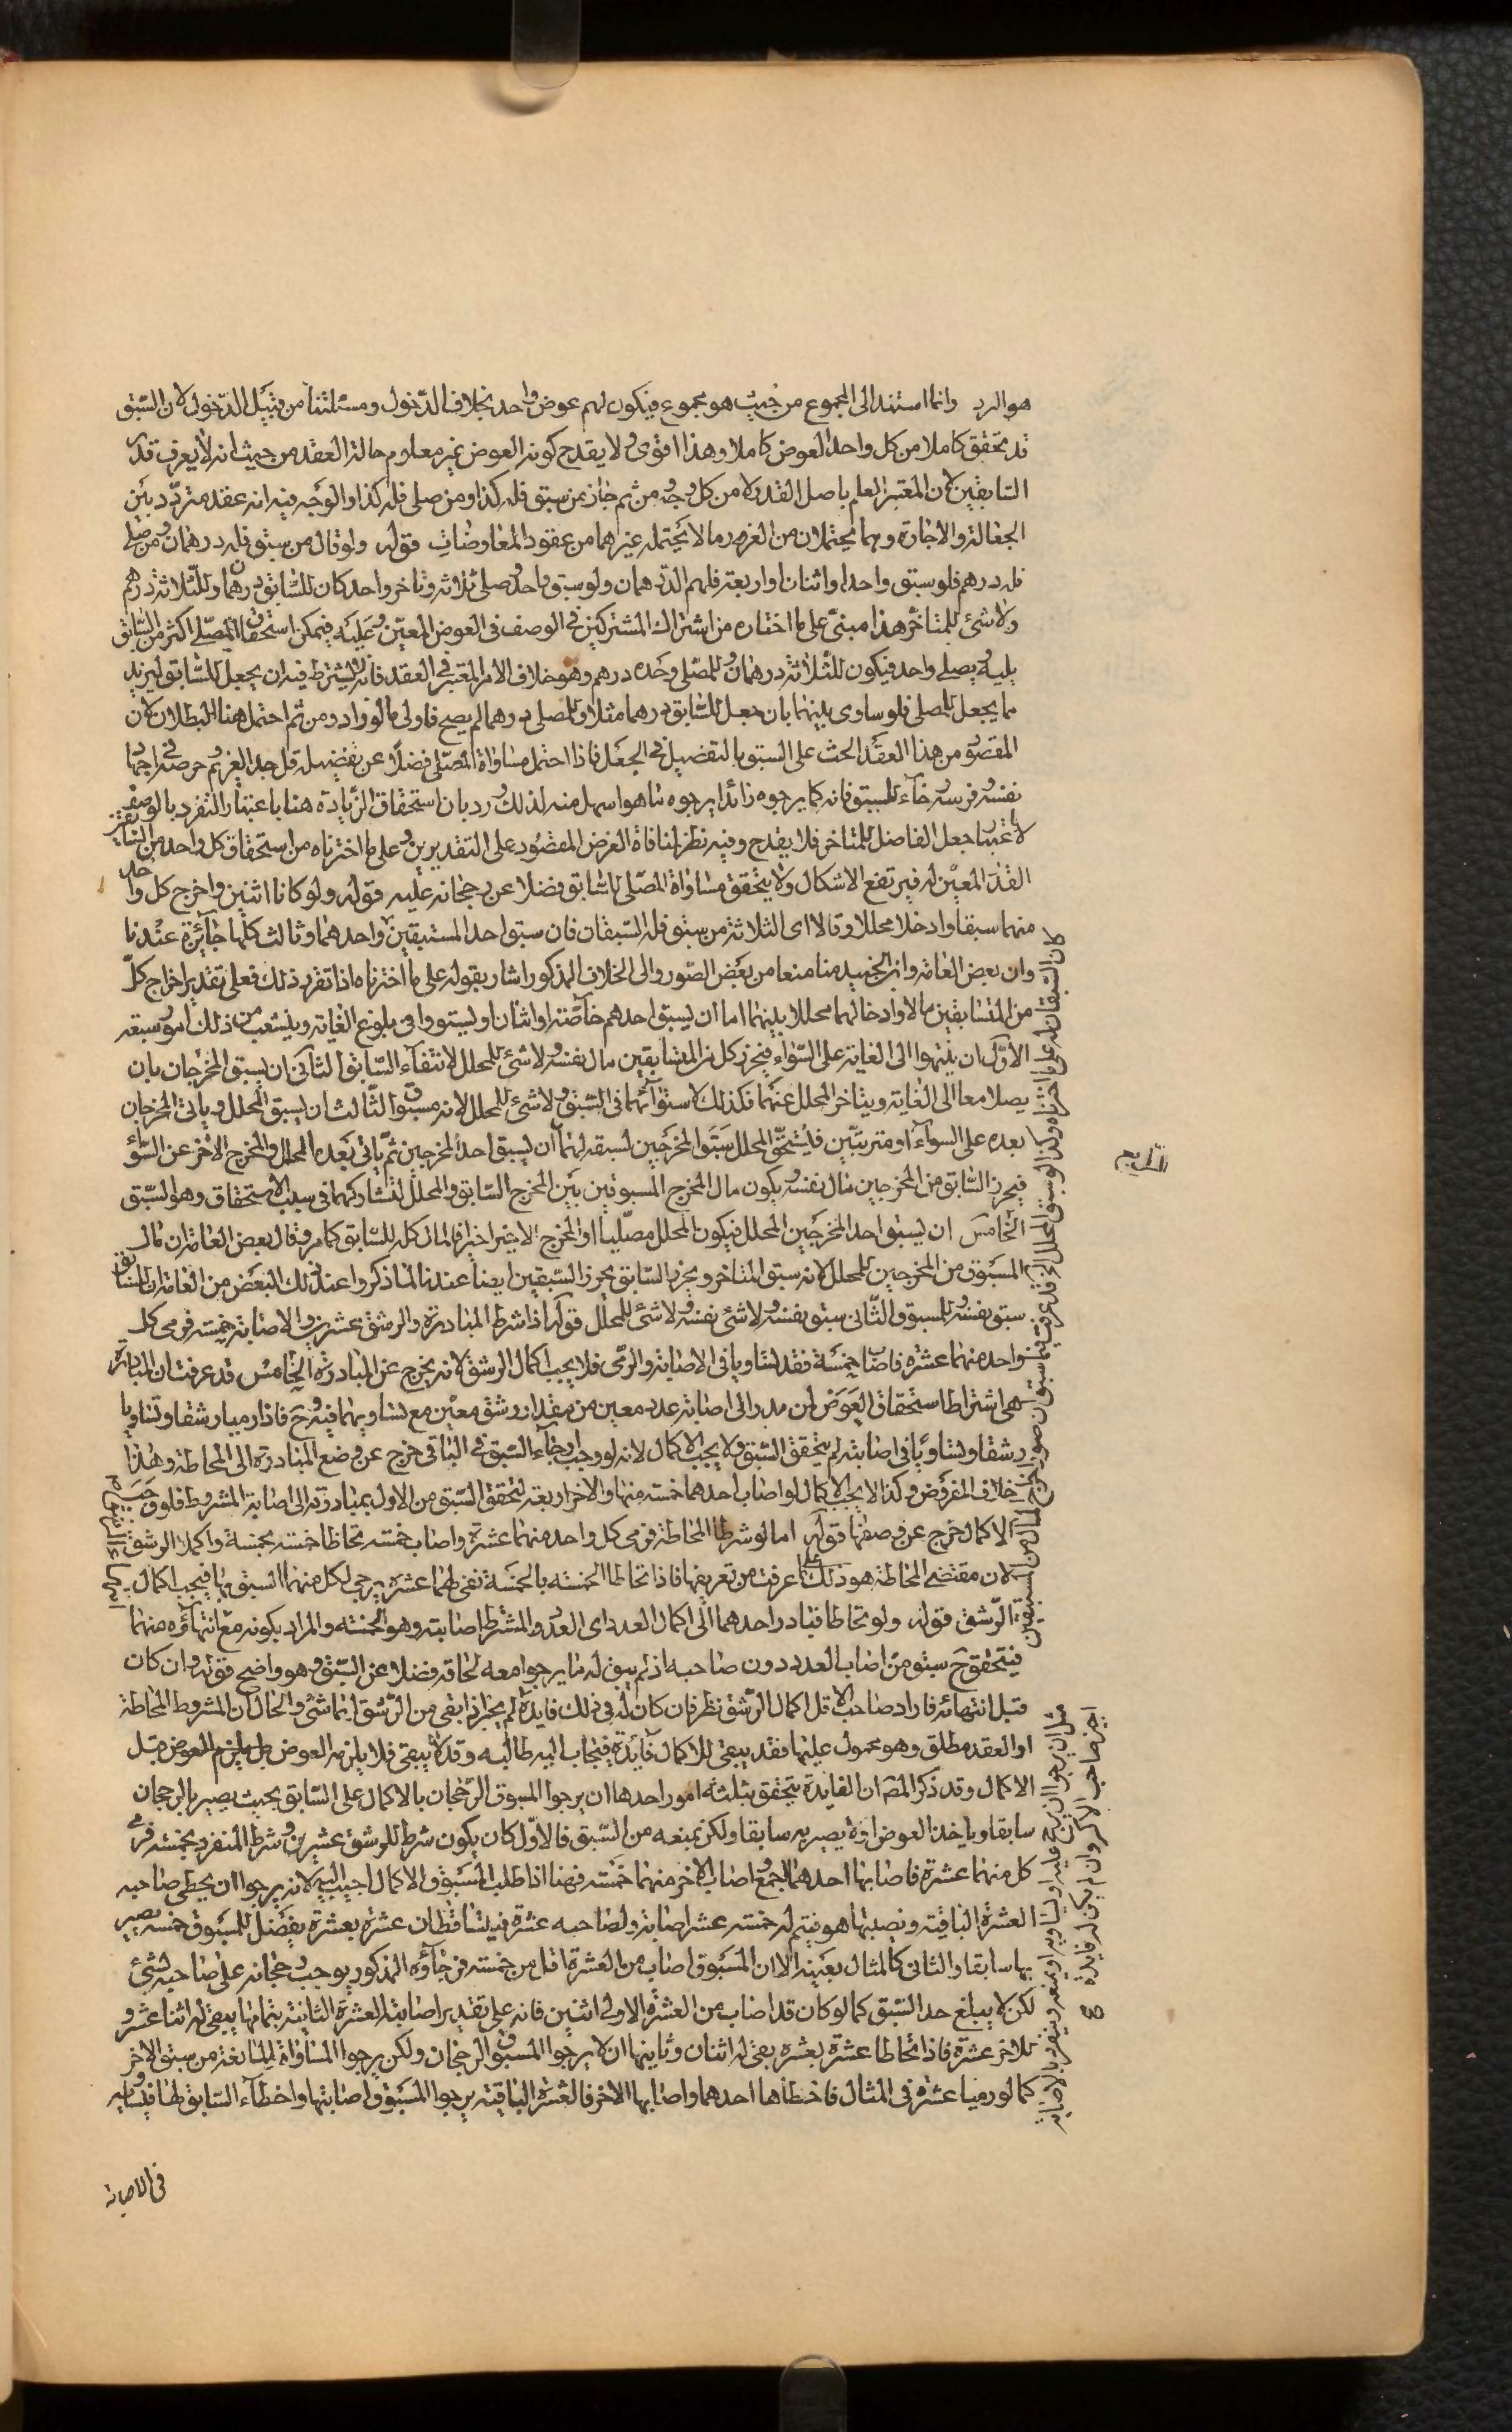 هو الرد وانما استند الى المجموع من حيث هو مجموع فيكون لهم عوض واحد بخلاف الدخول ومسئلتنا من قبيل الدخول لان السبق
قد تحقق كاملا من كل واحد العوض كاملا وهذا اقوى ولا يقدح كونه العوض غير معلوم حالة العقد من حيث انه لا يعرف قدر
السابقين لان المعتبر العلم باصل القدر لا من كل وجه ومن ثم جاز من سبق فله كذا ومن صلى فله كذا والوجه فيه انه عقد متردد بين
الجعالة والاجارة وهما يحتملان من الغرر ما لا يحتمله غيرهما من عقود المعاوضات قوله ولو قال من سبق فله درهمان ومن صلى
فله درهم فلو سبق واحد او اثنان او اربعة فلهم الدرهمان ولو سبق واحد وصلى ثلاثة وتاخر واحد كان للسابق درهمان وللثلاثة درهم
ولا شئ للمتاخر هذا مبنى على ما اختاره من اشتراك المشتركين في الوصف في العوض المعين وعليه فيمكن استحقاق المصلى اكثر من السابق
يليه يصلى واحد فيكون للثلاثة درهمان وللمصلى وحده درهم وهو خلاف الامر المعتبر في العقد فانه يشترط فيه ان يجعل للسابق ازيد
مما يجعل للمصلى فلو ساوى بينهما بان جعل للسابق درهما مثلا وللمصلى درهما لم يصح فاولى ما لو زاد ومن ثم احتمل هنا البطلان لان
المقصود من هذا العقد الحث على السبق بالتفضيل في الجعل فاذا احتمل مساواة المصلى فضلا عن تفضيله قل جد الغريم حرصه في اجهاد
نفسه وفرسه رجاء للسبق فانه كما يرجوه زائدا يرجوه مما هو اسهل منه لذلك ورد بان استحقاق الزيادة هنا باعتبار التفرد بالوصف
لا باعتبار جعل الفاضل للمتاخر فلا يقدح وفيه نظر لمنافاة الغرض المقصود على التقديرين وعلى ما اخترناه من استحقاق كل واحد من
القدر المعين له فيرتفع الاشكال ولا يتحقق مساواة المصلى للسابق فضلا عن رجحانه عليه قوله ولو كانا اثنين واخرج كل واحد
منهما سبقا وادخلا محللا وقالا اى الثلاثة من سبق فله السبقان فان سبق احد المستبقين واحدهما وثالث كلها جائزة عندنا
وان بعض العامة وابن الجنيد منا منعا من بعض الصور والى الخلاف المذكور اشار بقوله على ما اخترناه اذا تقرر ذلك فعلى تقدير اخراج كل
من المتسابقين مالا وادخالهما محللا بينهما اما ان يسبق احدهم خاصة او اثنان او يستووا في بلوغ الغاية ويتشعب من ذلك امور سبعة
الاول ان ينتهوا الى الغاية على السواء فيحرز كل من المتسابقين مال نفسه ولا شئ للمحلل لانتفاء السابق الثاني ان يسبق المخرجان بان
يصلا معا الى الغاية ويتاخر المحلل عنهما فكذلك لاستوائهما في السبق ولا شئ للمحلل لانه مسبوق الثالث ان يسبق المحلل وياتي المخرجان
بعده على السواء او مترتبين فيستحق المحلل سبق المخرجين لسبقه لهما ان يسبق احد المخرجين ثم ياتي بعده المحلل والمخرج الاخر على السواء
فيحرز السابق من المخرجين مال نفسه ويكون مال المخرج المسبوق بين المخرج السابق والمحلل لتشاركهما في سبب الاستحقاق وهو السبق
الخامس ان يسبق احد المخرجين المحلل فيكون المحلل مصليا او المخرج الاخير اخيرا فالمال كله للسابق كما مر وقال بعض العامة ان مال
المسبوق من المخرجين للمحلل لانه سبق المتاخر ويحرز السابق يحرز السبقين ايضا عندنا لما ذكر وعند ذلك البعض من العامة ان للسابق
سبق نفسه وللمسبوق الثاني سبق نفسه ولا شئ للمحلل قوله اذا شرط المبادرة والرشق عشرين والاصابة خمسة فرمى كل
واحد منهما عشرة فاصاب خمسة فقد تساويا في الاصابة والرمى فلا يجب اكمال الرشق لانه يخرج عن المبادرة قد عرفت ان المبادرة
هى اشتراط استحقاق العوض لمن بدر الى اصابة عدد معين من مقدار رشق معين مع تساويهما فيه وح فاذا رميا رشقا وتساويا
رشقا وتساويا في اصابته لم يتحقق السبق ولا يجب الاكمال لانه لو وجب رجاء السبق في الباقي خرج عن وضع المبادرة الى المحاطة وهذا
خلاف المفروض وكذا لا يجب الاكمال لو اصاب احدهما خمسة منها والاخر اربعة لتحقق السبق من الاول بمبادرته الى اصابة المشروط فلو وجب
الاكمال خرج عن صفتها قوله اما لو شرطا المحاطة فرمى كل واحد منهما عشرة واصاب خمسة تحاطا خمسة بخمسة واكملا الرشق
لان مقتضى المحاطة هو ذلك كما عرفت من تعريفها فاذا تحاطا الخمسة بالخمسة بقى لهما عشرة يرجى لكل منهما السبق بها فيجب اكمال
الرشق قوله ولو تحاطا فبادر احدهما الى اكمال العدد اى العدد المشترط اصابته وهو الخمسة والمراد بكونه مع انتهائه منهما
فيتحقق ح سبق من اصاب العدد دون صاحبه اذ لم يبق له ما يرجوا معه لحاقه فضلا عن السبق وهو واضح قوله وان كان
قبل انتهائه فاراد صاحب الاقل اكمال الرشق نظر فان كان له في ذلك فايدة لم يجز اذا بقى من الرشق لهما شئ والحال ان المشروط المحاطة
او العقد مطلق وهو محمول عليها فقد يبقى للاكمال فائدة فيجاب اليه طالبه وقد لا يبقى فلا يلزمه العوض بل يلزم العوض قبل
الاكمال وقد ذكر المص ان الفايدة يتحقق بثلثة امور احدها ان يرجوا المسبوق الرجحان بالاكمال على السابق بحيث يصير بالرجحان
سابقا وياخذ العوض او لا يصير به سابقا ولكن يمنعه من السبق فالاول كان يكون شرط للرشق عشرين وشرط المنفرد بخمسة فرمى
كل منهما عشرة فاصابها احدهما اجمع واصاب الاخر منها خمسة فهنا اذا طلب المسبوق الاكمال اجيب اليه لانه يرجوا ان يخطى صاحبه
العشرة الباقية ويصيبها هو فيتم له خمسة عشر اصابة ولصاحبه عشرة فيتساقطان عشرة بعشرة يفضل للمسبوق خمسة يصير
بها سابقا والثاني كالمثال بعينه الا ان المسبوق اصاب من العشرة اقل من خمسة فرجاؤه المذكور يوجب رجحانه على صاحبه بشئ
لكن لا يبلغ حد السبق كما لو كان قد اصاب من العشرة الاولى اثنين فانه على تقدير اصابته العشرة الثانية بتمامها يبقى له اثنا عشر و
للاخر عشرة فاذا تحاطا عشرة بعشرة بقى له اثنان وثانيها ان لا يرجوا المسبوق الرجحان ولكن يرجوا المساواة المانعة من سبق الاخر
كما لو رميا عشرة في المثال فاخطأها احدهما واصابها الاخر فالعشرة الباقية يرجوا المسبوق اصابتها واخطاء السابق لها فيساويه
في الاصابة
الرابع